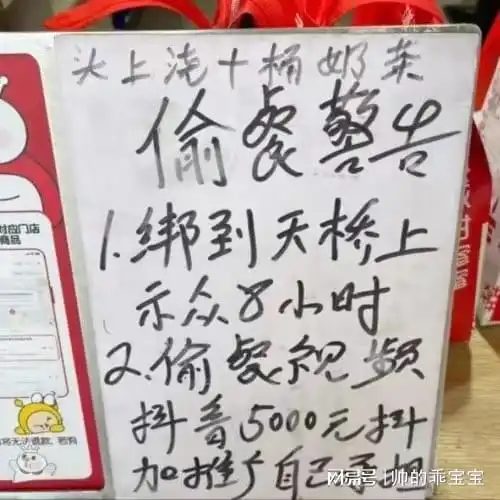 头上浇十桶奶茶
偷餐警告
1.绑到天桥上
示众8小时
2.偷餐视频
抖音5000元抖
加推广自己
对应门店
商品
将无法退款,若有
搜狐号|帅的乖宝宝